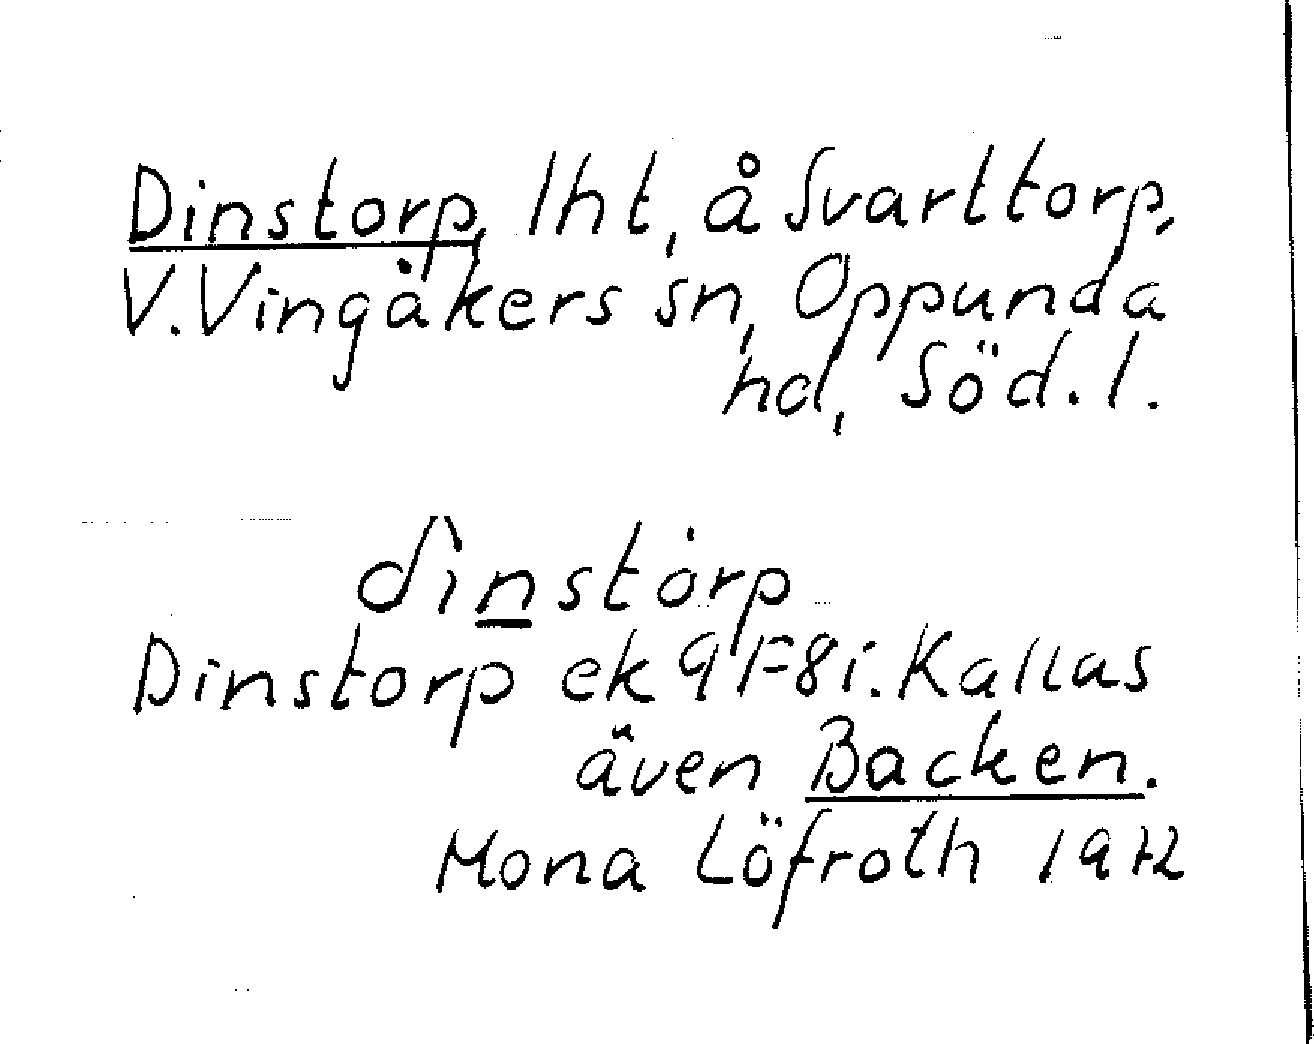 Dinstorp, lht, å Svarttorp,
V. Vingåkers sn, Oppunda
hd, Söd. l.
dinstȯrp
Dinstorp ek 9F8i. Kallas
även Backen.
Mona Löfroth 1972